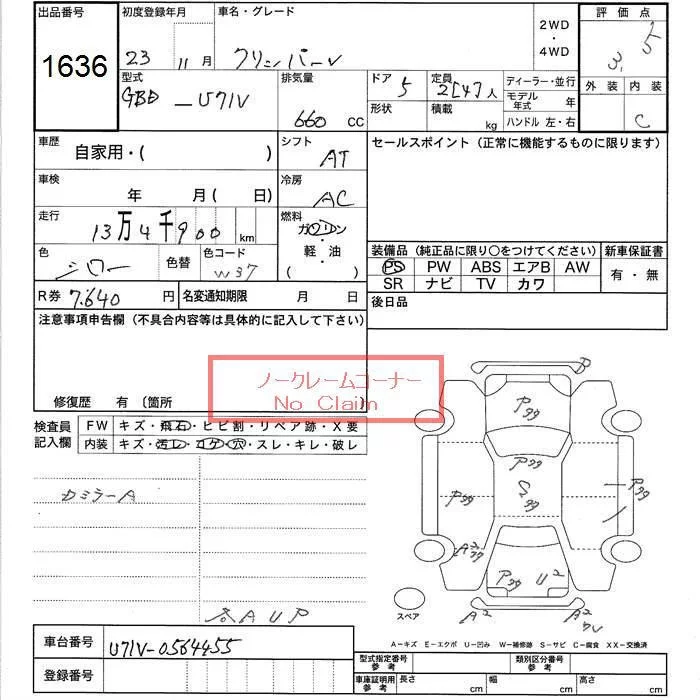 出品番号 初度登録年月 車名・グレード 評価点
1636 23 11月 クリッパーV 2WD・4WD 3.5
型式 排気量 ドア 定員 ディーラー・並行 外装 内装
GBD-U71V 660 CC 5 2[4]人 モデル年式 年 C
形状 積載 kg ハンドル 左・右
車歴 シフト セールスポイント (正常に機能するものに限ります)
自家用・( ) AT
車検 冷房
年 月( 日) AC
走行 燃料
13万4千900 km ガソリン・軽油 ( )
装備品 (純正品に限り○をつけてください) 新車保証書
色 色替 色コード PS PW ABS エアB AW 有・無
シロー W37 SR ナビ TV カワ
R券 7.640円 名変通知期限 月 日 後日品
注意事項申告欄 (不具合内容等は具体的に記入して下さい)
ノークレームコーナー
No Claim
修復歴 有 (箇所
検査員記入欄 FW キズ・飛石・ヒビ割・リペア跡・X要
内装 キズ・汚レ・コゲ・穴・スレ・キレ・破レ
P99
P99
S99
P99
P99
カミラーA
P99 U2
スペア
A2
AUP
A-キズ E-エクボ U-凹み W-補修跡 S-サビ C-腐食 XX-交換済
車台番号 U71V-0564455
登録番号
型式指定番号参考 類別区分番号参考
車庫証明用参考 長さ cm 幅 cm 高さ cm